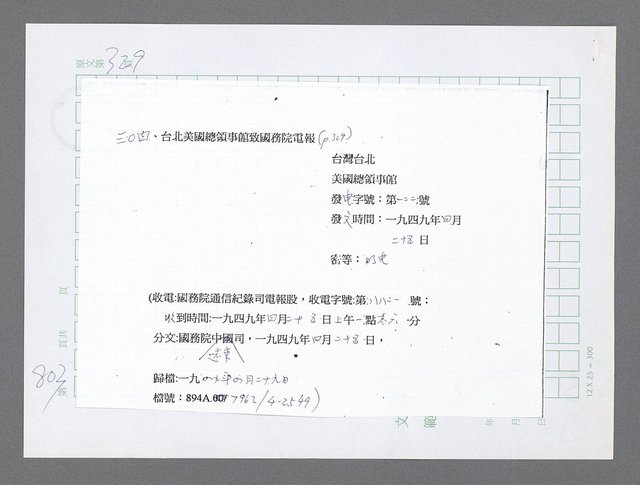 原文第329頁
三〇四、台北美國總領事館致國務院電報(p.329)
台灣台北
美國總領事館
發電字號：第一二二號
發文時間：一九四九年四月
二十五日
密等：明電
(收電:國務院通信紀錄司電報股，收電字號:第 號；
收到時間:一九四九年四月二十五日上午一點 分
分文:國務院中國司，一九四九年四月二十五日，
遠東
歸檔:一九四九年 月二十九日
檔號：894A.00/7962/4-2549)
803
第 頁共 頁
12 X 25 = 300
文 範
年 月 日